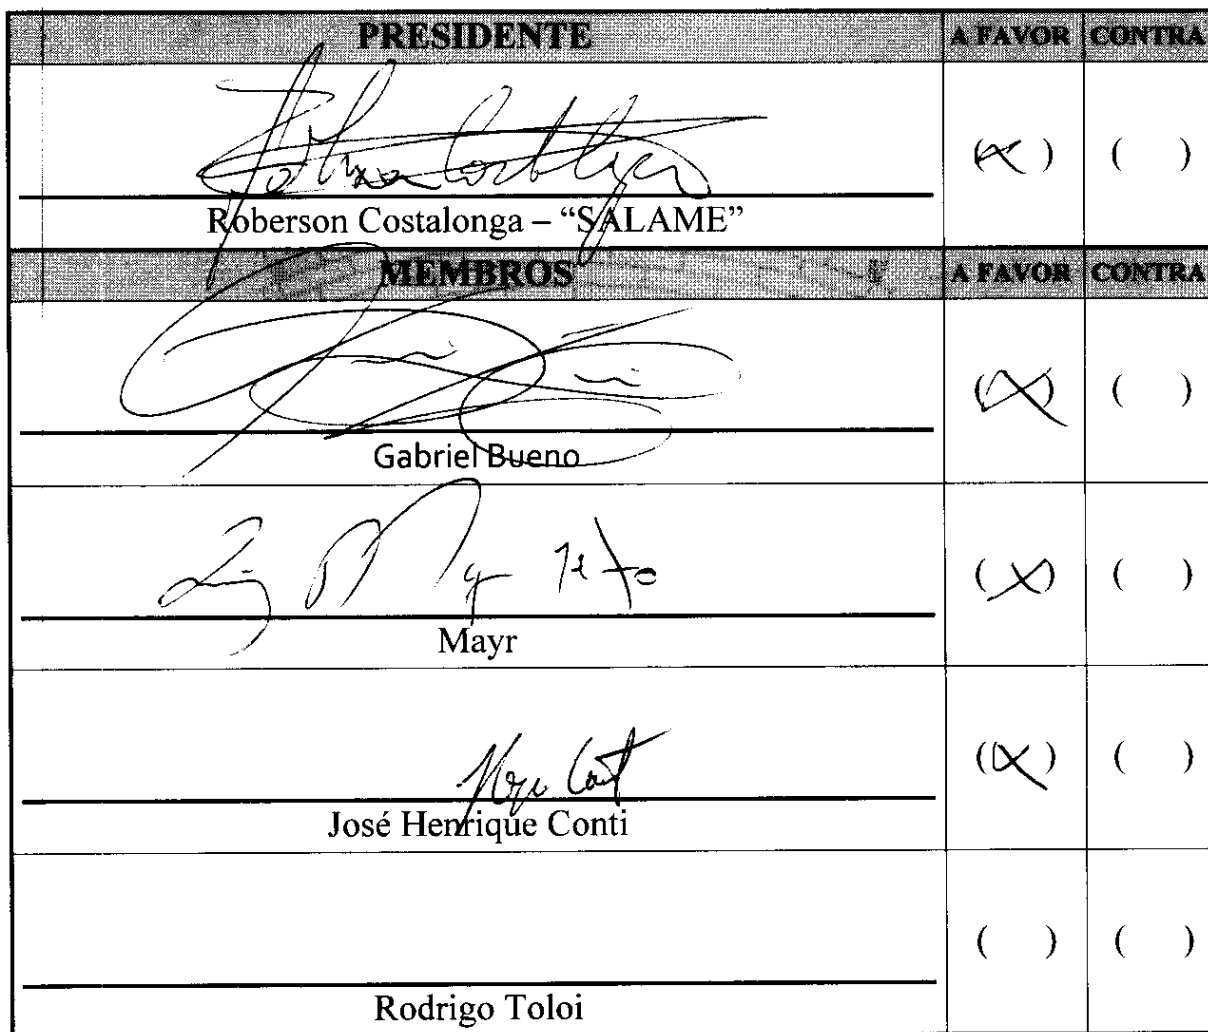 PRESIDENTE A FAVOR CONTRA
(X) ( )
Roberson Costalonga – “SALAME”
MEMBROS A FAVOR CONTRA
(X) ( )
Gabriel Bueno
(X) ( )
Mayr
(X) ( )
José Henrique Conti
( ) ( )
Rodrigo Toloi